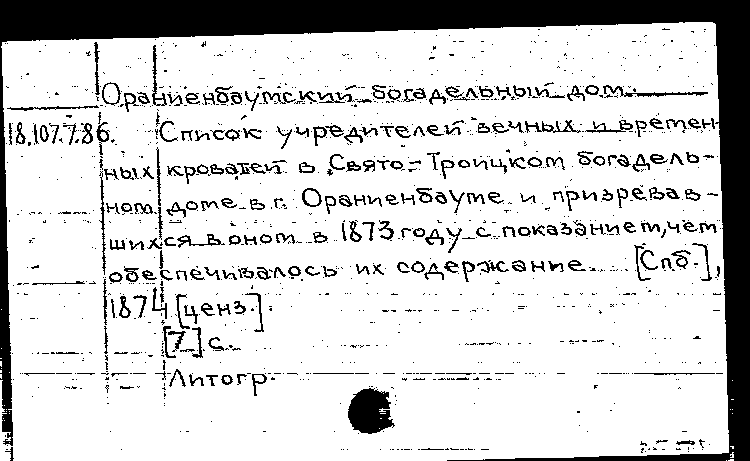 Ораниенбаумский богадельный дом.
18.107.7.86. Список учредителей вечных и времен-
ных кроватей в Свято-Троицком богадель-
ном доме в г. Ораниенбауме и призревав-
шихся в оном в 1873 году с показанием, чем
обеспечивалось их содержание. [Спб.],
1874 [ценз.].
[7] с.
Литогр.